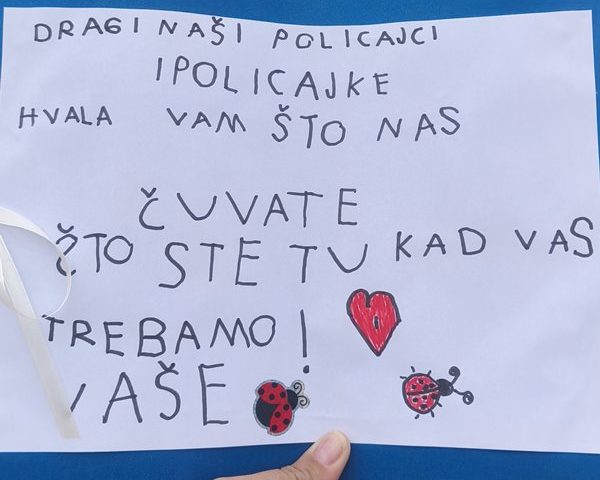 DRAGI NAŠI POLICAJCI
I POLICAJKE
HVALA VAM ŠTO NAS
ČUVATE
ŠTO STE TU KAD VAS
TREBAMO!
VAŠE